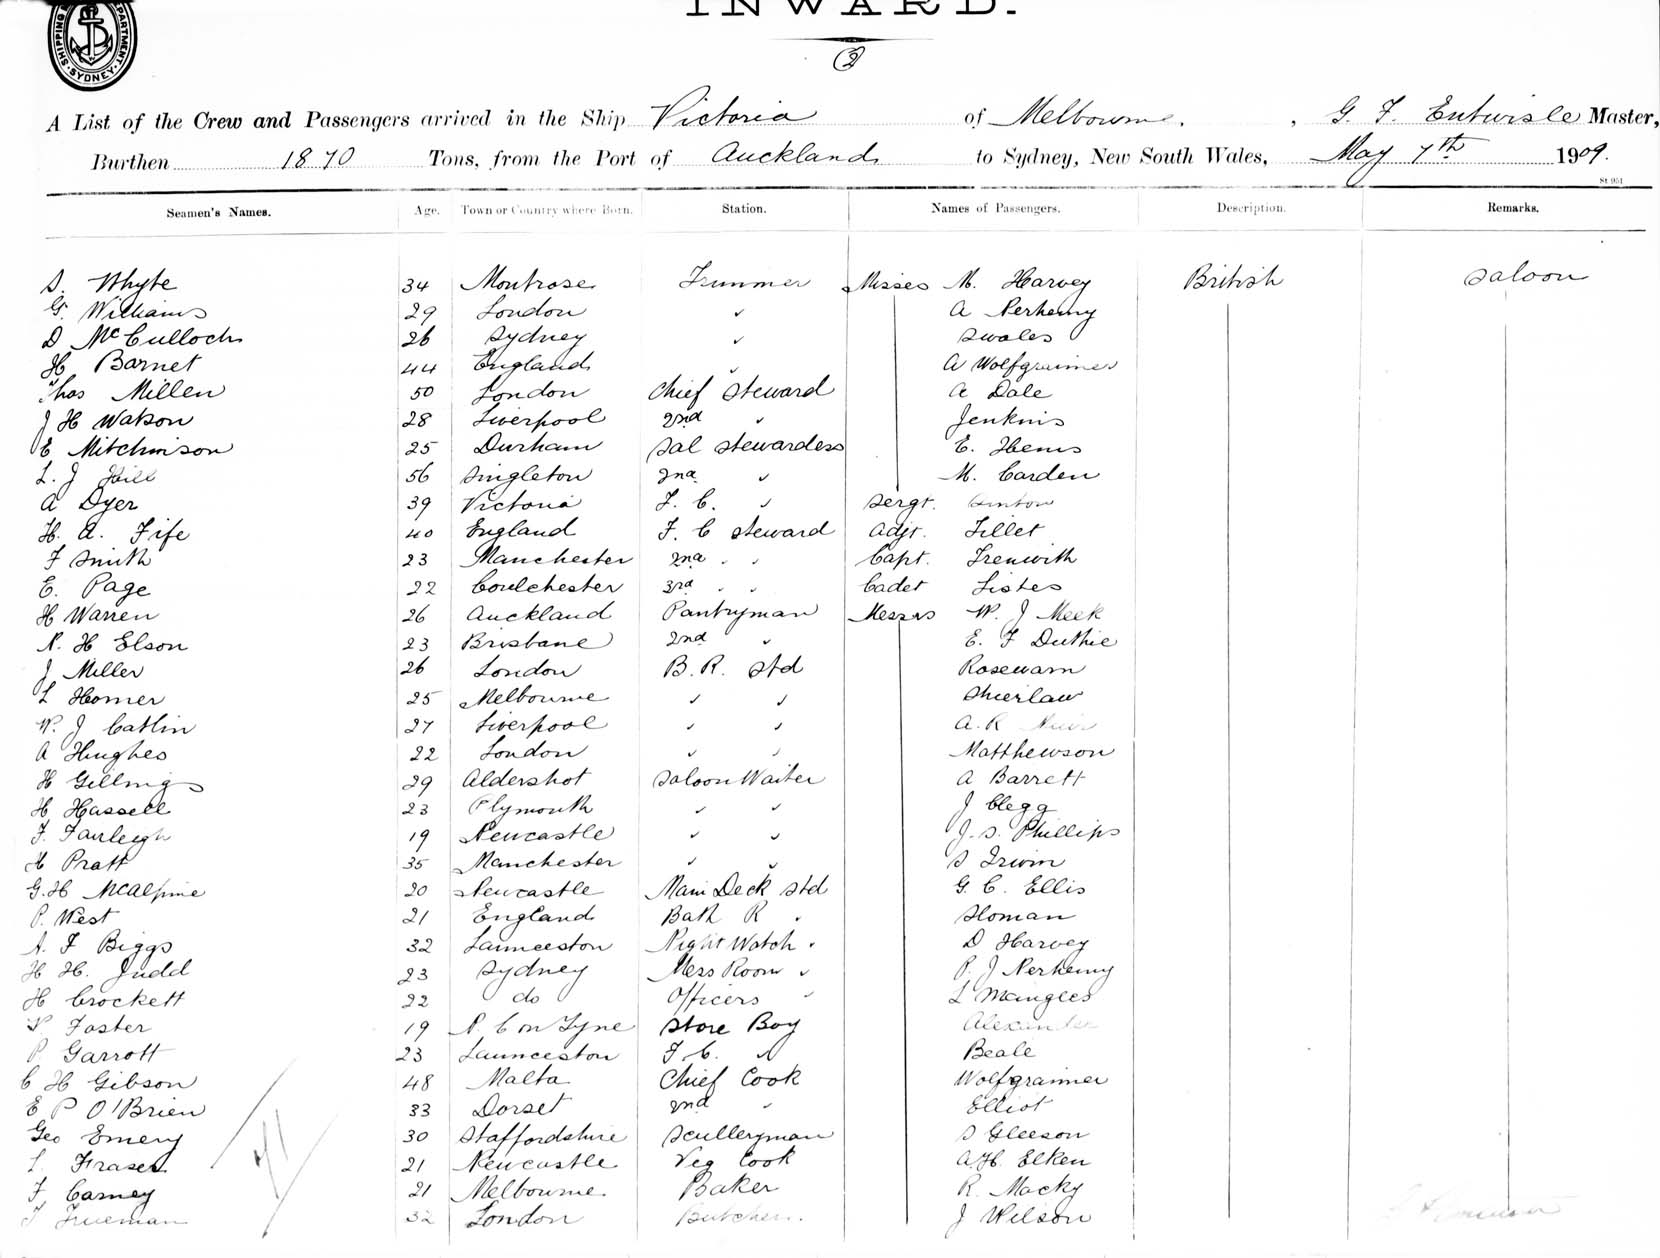 INWARD.
SHIPPING DEPARTMENT SYDNEY
2
A List of the Crew and Passengers arrived in the Ship Victoria of Melbourne, G. F. Entwisle Master,
Burthen 1870 Tons, from the Port of Auckland to Sydney, New South Wales, May 7th 1909.
St 951
Seamen's Names. Age. Town or Country where Born. Station. Names of Passengers. Description. Remarks.
S. Whyte 34 Montrose Trimmer Misses M. Harvey British Saloon
G. Williams 29 London " A Nerheny
D McCulloch 26 Sydney " Swales
H Barnet 44 England " A Wolfgrainmer
Thos Millen 50 London Chief Steward A Dale
J H Watson 28 Liverpool 2nd " Jenkins
E Mitchinson 25 Durham Sal Stewardess E. Hems
L. J Hill 56 Singleton 2nd " M. Carden
A Dyer 39 Victoria F. C. " Sergt.
H. A. Fife 40 England F. C Steward Adjt. Tillet
F Smith 23 Manchester 2nd " " Capt. Trenwith
E. Page 22 Coulchester 3rd " " Cadet Lister
H Warren 26 Auckland Pantryman Messrs W. J Meek
N. H Elson 23 Brisbane 2nd " E. F Duthie
J Miller 26 London B. R. Std Rosewarn
L Homer 25 Melbourne " " Shierlaw
W. J Catlin 27 Liverpool " " A. R Muir
A Hughes 22 London " " Matthewson
H Gillings 29 Aldershot Saloon Waiter A Barrett
H Hassell 23 Plymouth " " J Clegg
F. Fairleigh 19 Newcastle " " J. S. Phillips
H Pratt 35 Manchester " " S Irwin
G. H McAlpine 20 Newcastle Main Deck Std G. C. Ellis
P. West 21 England Bath R " Sloman
A. F Biggs 32 Launceston Night Watch " D Harvey
H H. Judd 23 Sydney Mess Room " P. J Nerheny
H Crockett 22 do Officers " L Mangles
P Foster 19 N. C on Tyne Store Boy Alexander
P Garrott 23 Launceston F. C. " Beale
C H Gibson 48 Malta Chief Cook Wolfgrainmer
E P O'Brien 33 Dorset 2nd " Elliot
Geo Emery 30 Staffordshire Sculleryman S Gleeson
L. Fraser 21 Newcastle Veg Cook A. H. Elken
F. Carney 21 Melbourne Baker R. Macky
T Trueman 32 London Butcher. J Wilson